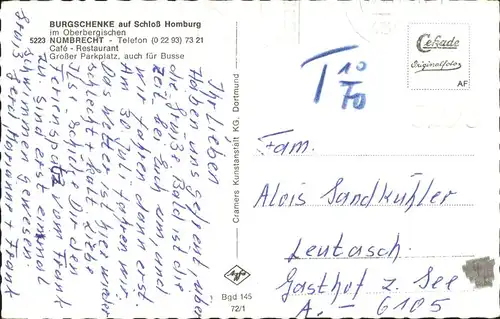 BURGSCHENKE auf Schloß Homburg
im Oberbergischen
5223 NÜMBRECHT - Telefon (0 22 93) 73 21
Café - Restaurant
Großer Parkplatz, auch für Busse
Ihr Lieben
Haben uns gefreut, über
die Grüße. Bald ist die
Zeit bei Euch um, und
wir fahren dann erst
am 30. Juli fahren wir.
Das Wetter ist hier immer
schlecht + kalt. Liebe
Ilse schicke Dir den
Terminsplatz vom Frank
zu. Sind erst einmal
schwimmen gewesen.
Gruß + Frank
Cramers Kunstanstalt KG, Dortmund
Agfa
Bgd 145
72/1
T 10/70
Cekade
Originalfotos
AF
Fam.
Alois Sandkühler
Leutasch
Gasthof z. See
A - 6105